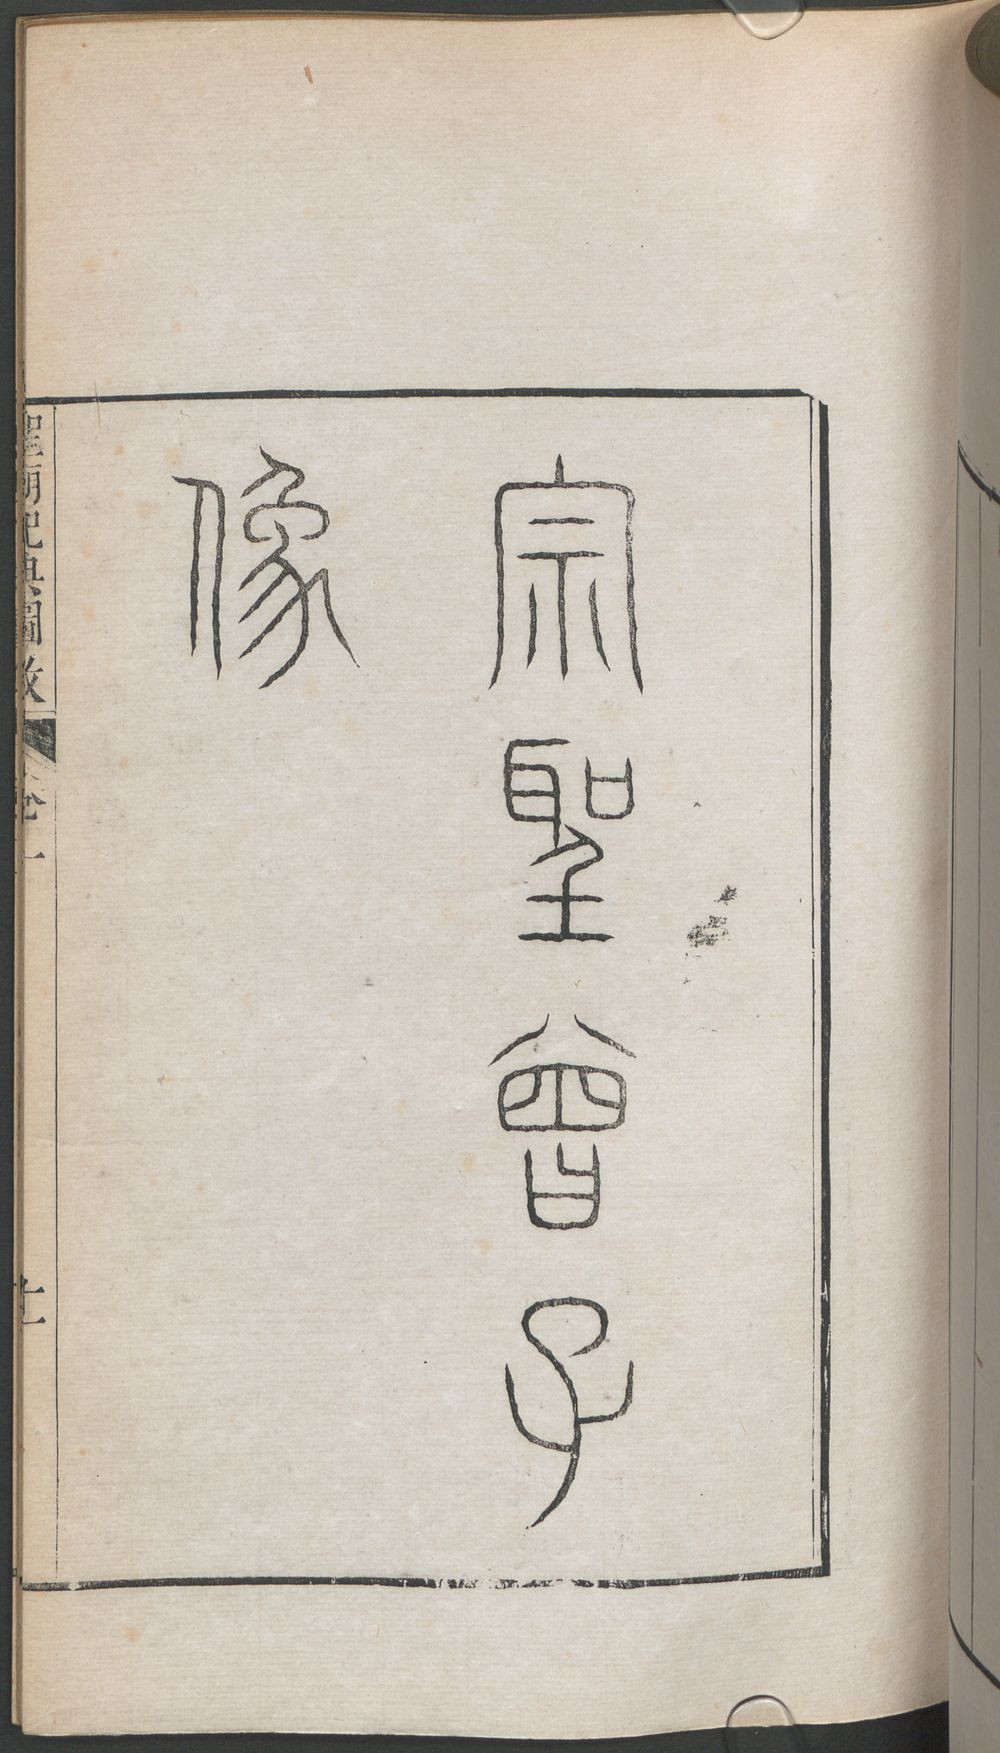 宗聖曾子
像
聖廟祀典圖攷
卷一